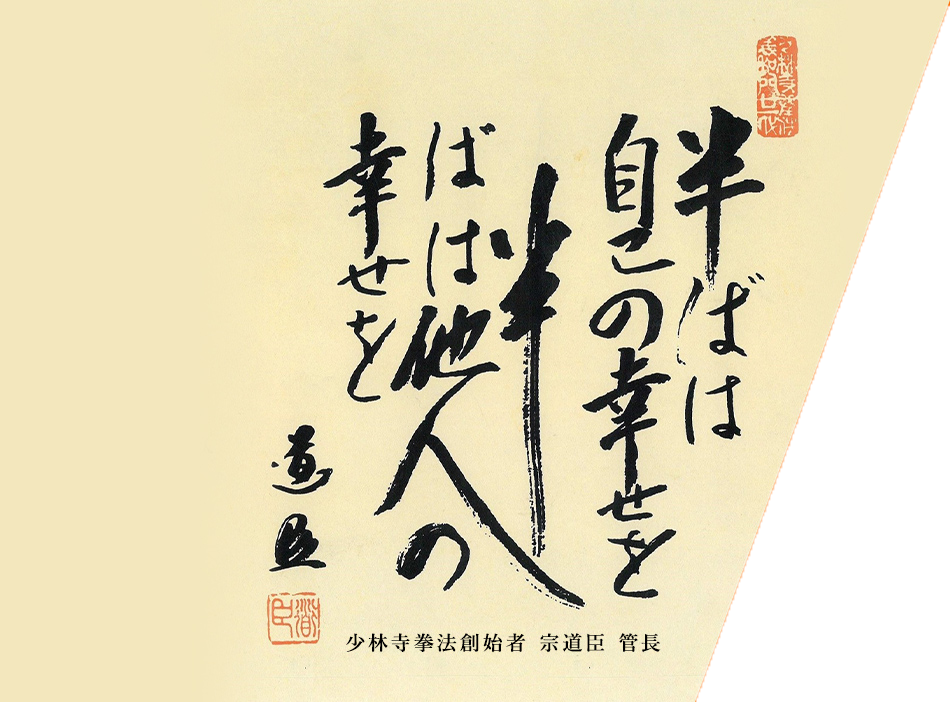 半ばは
自己の幸せを
半
ばは他人の
幸せを
道臣
少林寺拳法創始者 宗道臣 管長